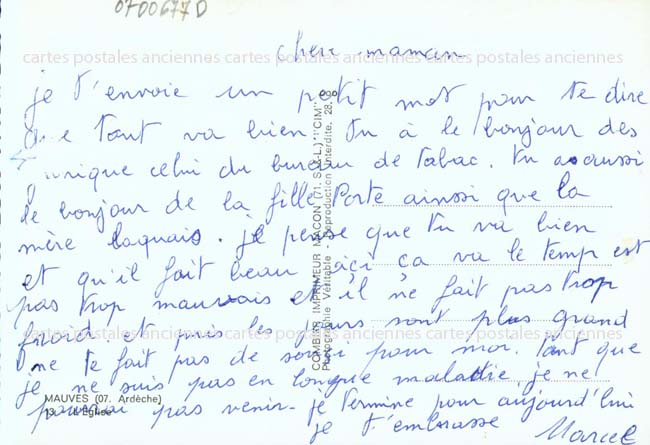 0700677D
cartes postales anciennes cartes postales anciennes cartes postales anciennes
chere maman
je t'envoie un petit mot pour te dire
que tout va bien. Tu à le bonjour des
celui du bureau de Tabac. tu as aussi
le bonjour de la fille Porte ainsi que la
mère Laquais. je pense que tu va bien
et qu'il fait beau içi ça va le temp est
pas trop mauvais et il ne fait pas trop
froid et puis les jours sont plus grand
cartes postales anciennes cartes postales anciennes cartes postales anciennes
ne te fait pas de souci pour moi. Tant que
je ne suis pas en longue maladie je ne
pas venir. je termine pour aujourd'hui
je t'embrasse
Marcel
MAUVES (07. Ardèche)
13. L'Eglise
COMBIER IMPRIMEUR MACON (71. S.-&-L.) "CIM"
Photographie Véritable Reproduction Interdite.